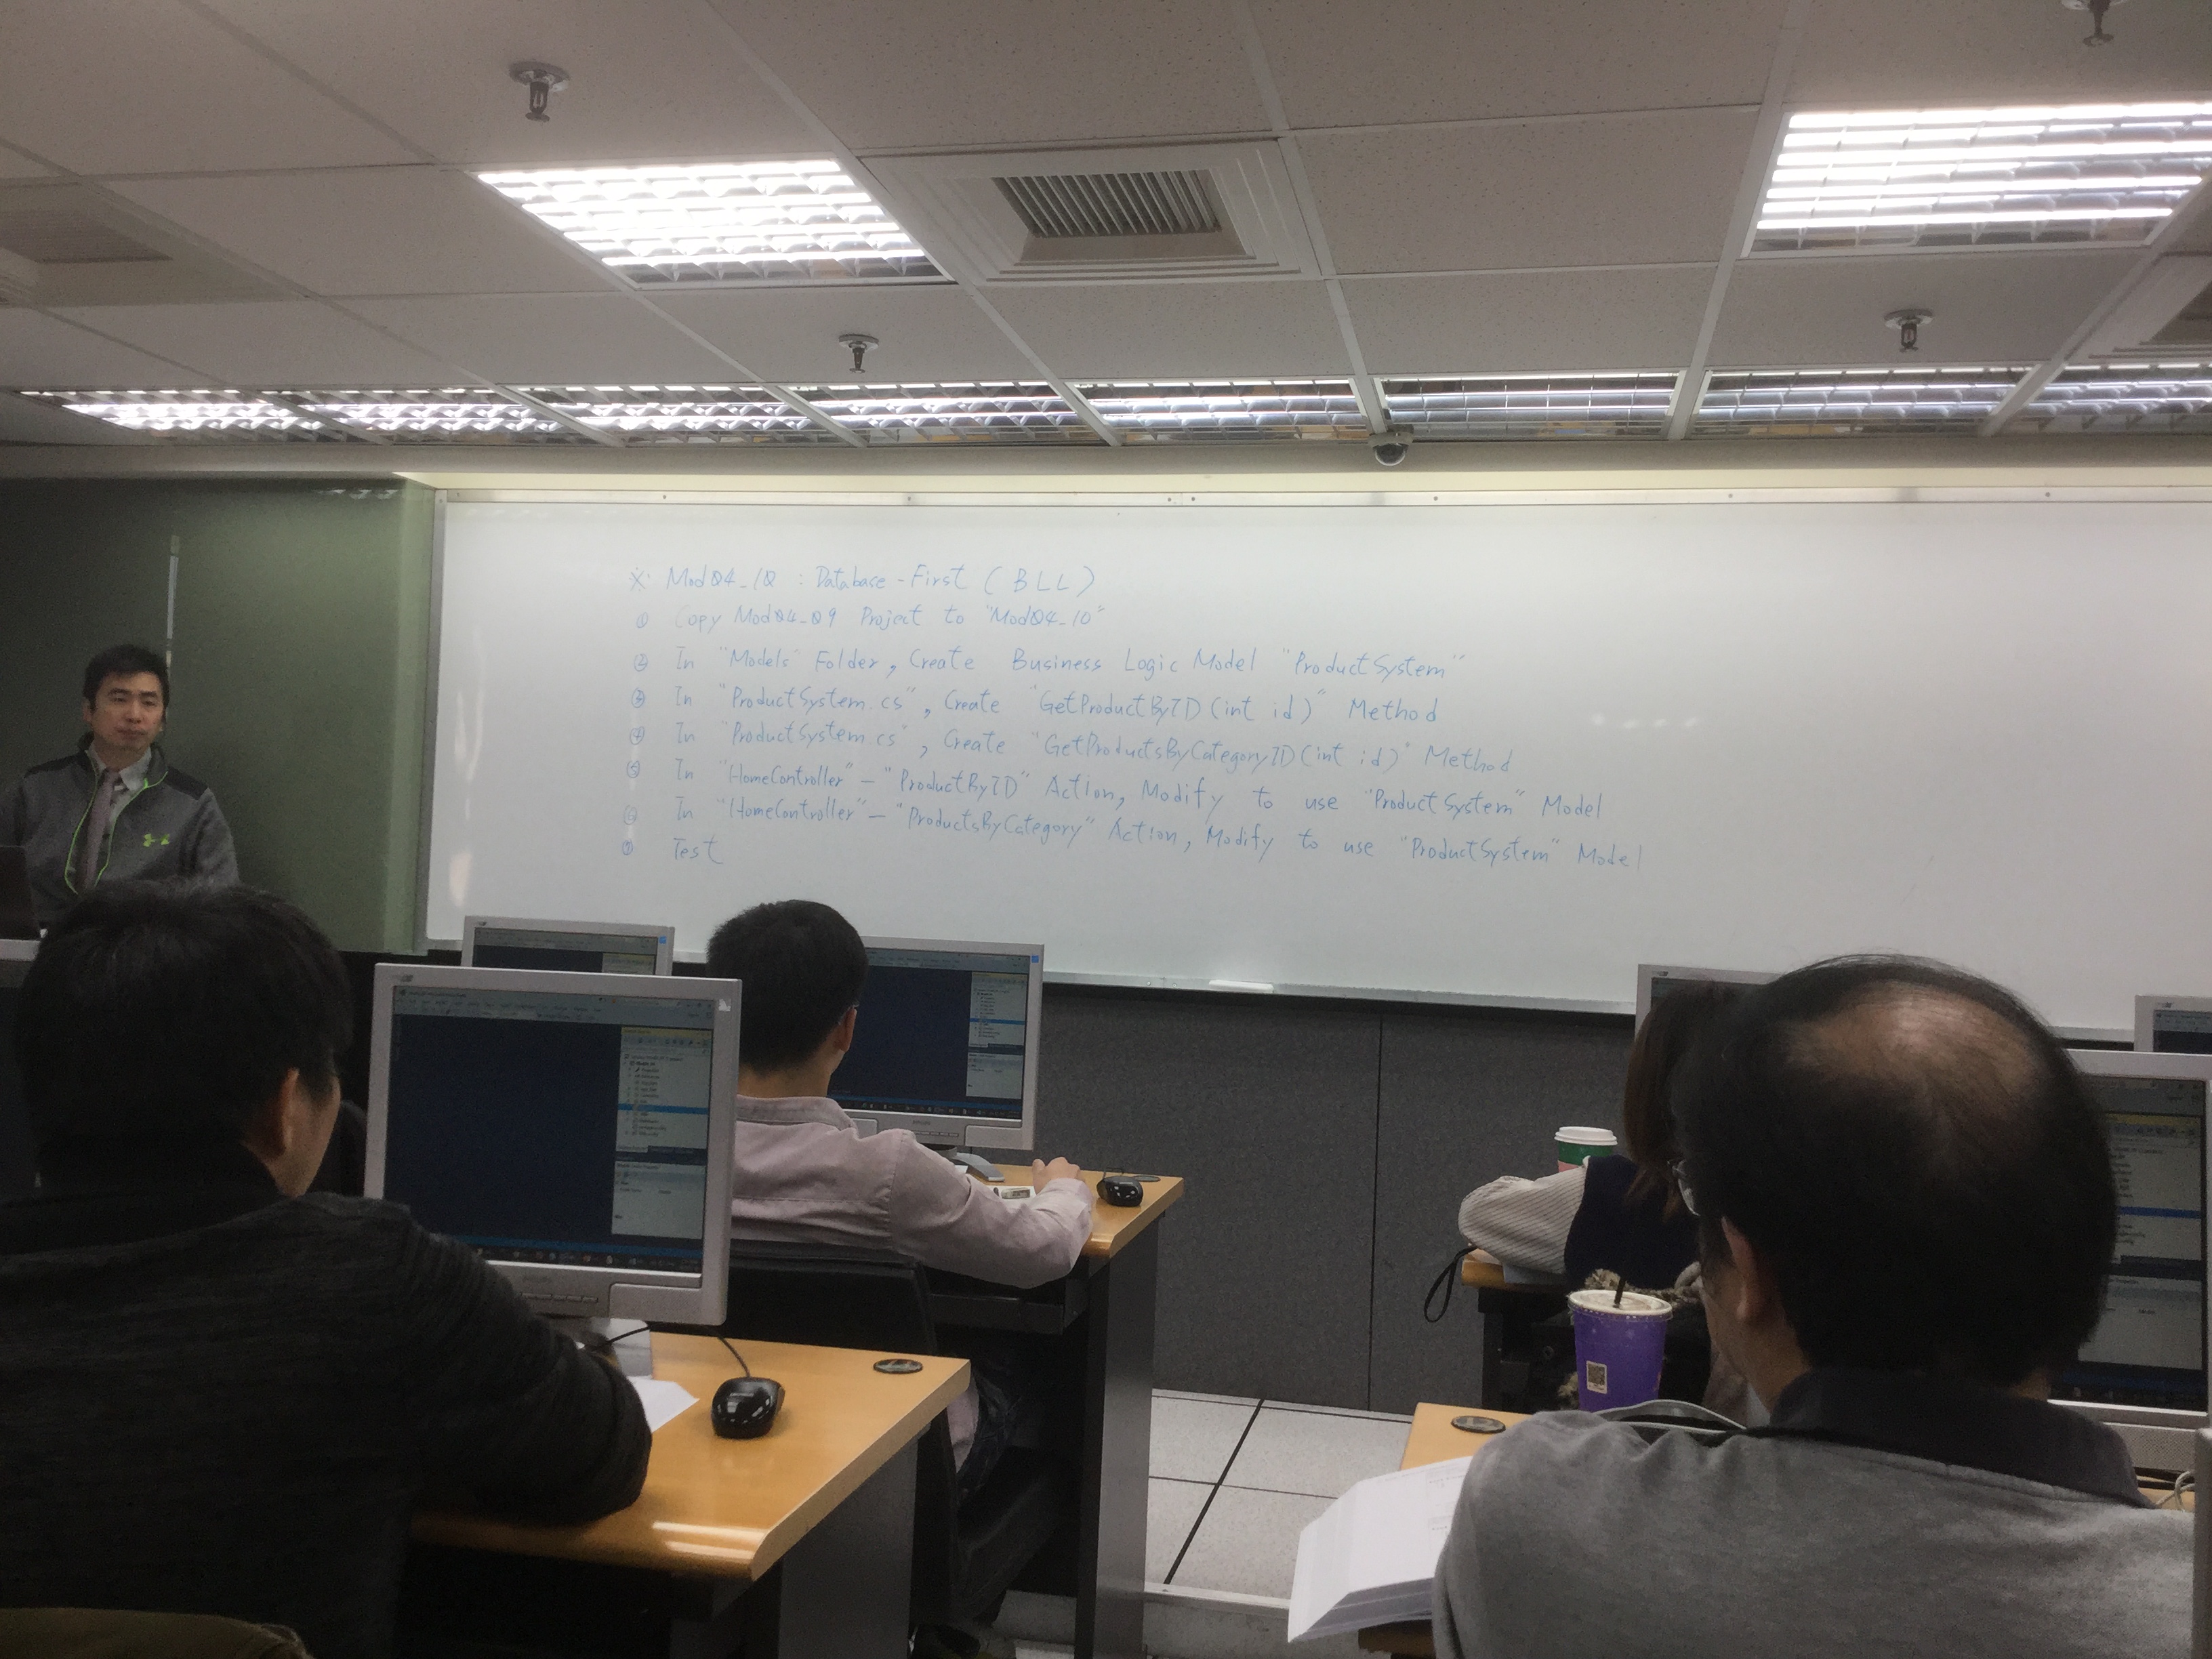 ※ Mod04_10 : Database-First (BLL)
① Copy Mod04_09 Project to "Mod04_10"
② In "Models" Folder, Create Business Logic Model "ProductSystem"
③ In "ProductSystem.cs", Create "GetProductByID(int id)" Method
④ In "ProductSystem.cs", Create "GetProductsByCategoryID(int id)" Method
⑤ In "HomeController" – "ProductByID" Action, Modify to use "ProductSystem" Model
⑥ In "HomeController" – "ProductsByCategory" Action, Modify to use "ProductSystem" Model
⑦ Test